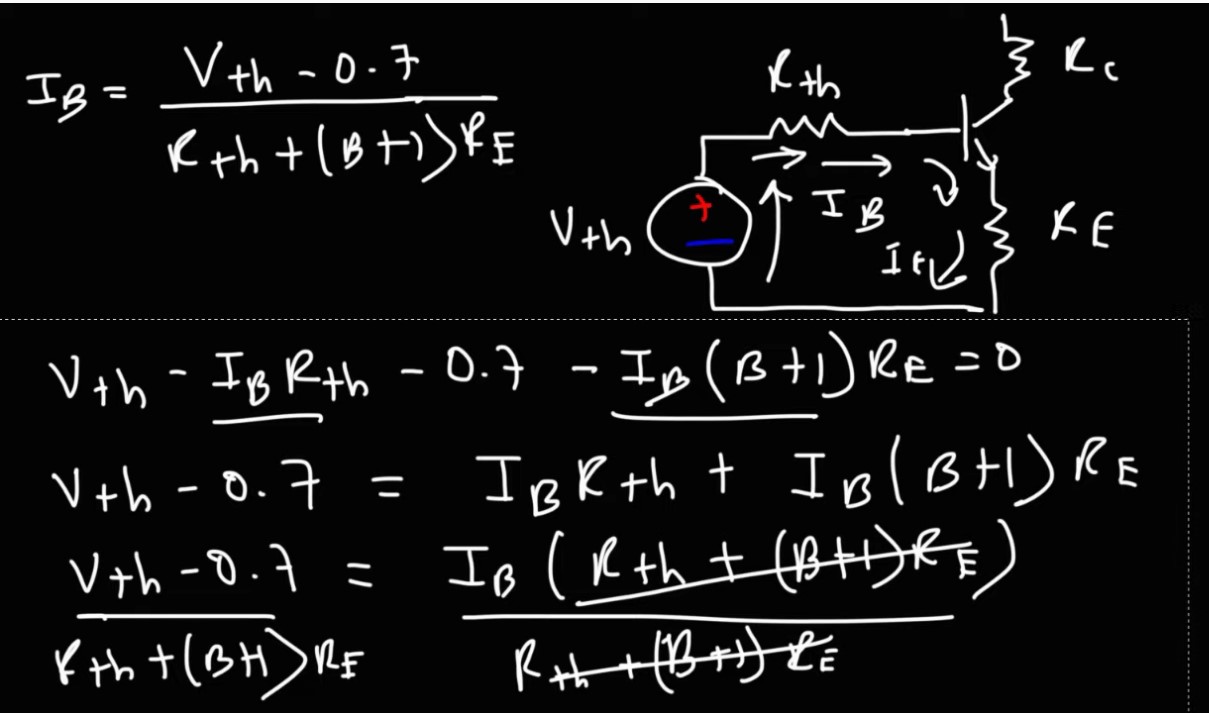 I_B = (V_th - 0.7) / (R_th + (B+1)R_E)
R_th
R_c
V_th
+
−
I_B
I_E
R_E
V_th - I_B R_th - 0.7 - I_B (B+1) R_E = 0
V_th - 0.7 = I_B R_th + I_B (B+1) R_E
(V_th - 0.7) / (R_th + (B+1) R_E) = I_B (R_th + (B+1) R_E) / (R_th + (B+1) R_E)